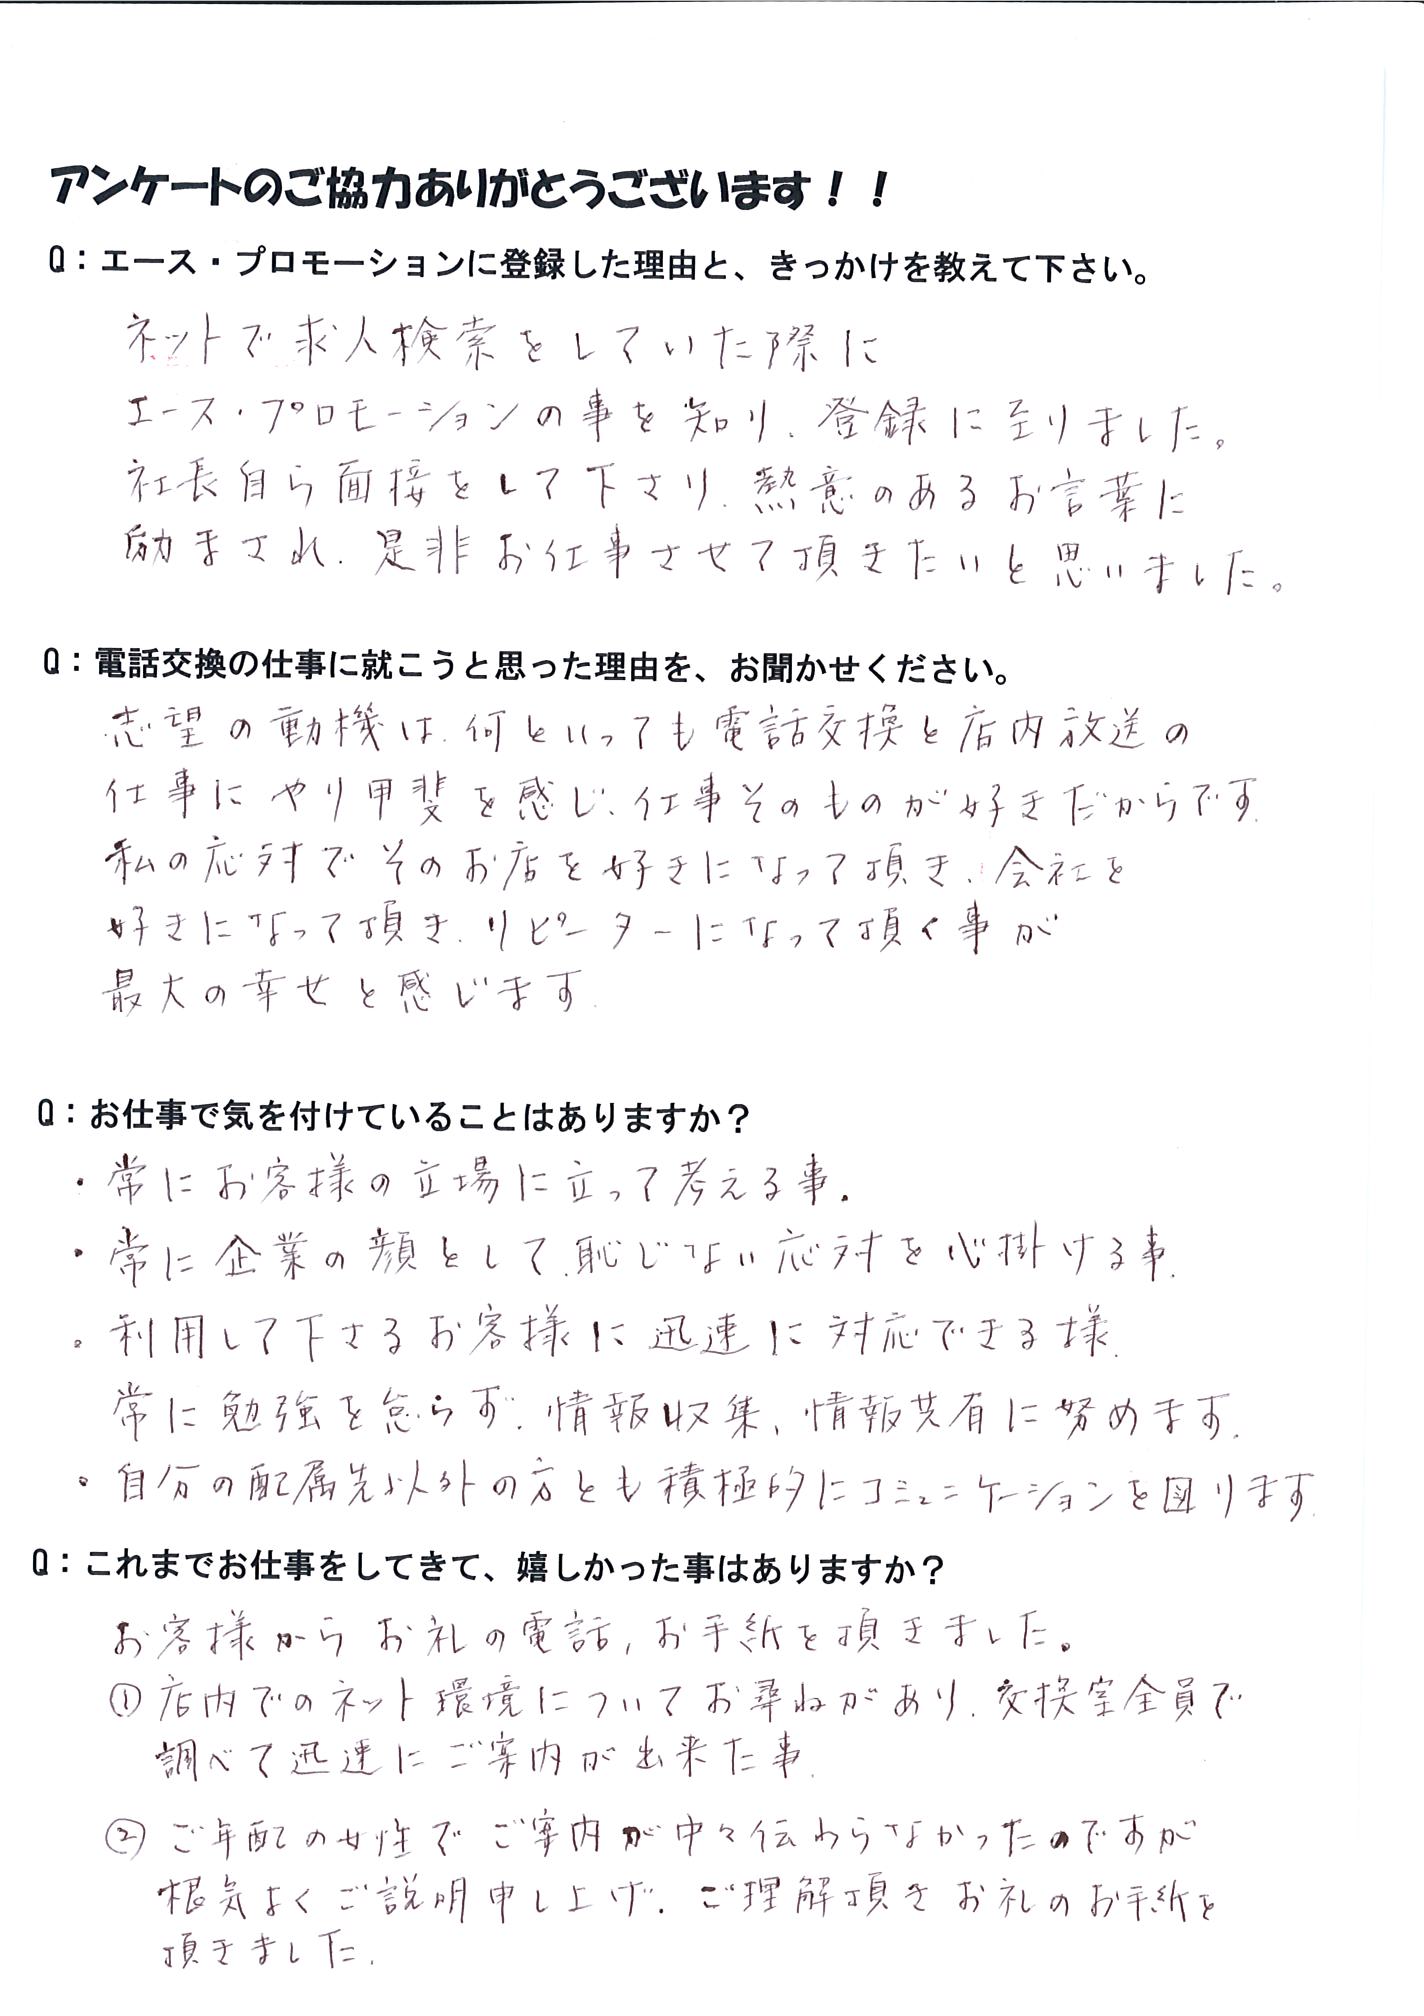 アンケートのご協力ありがとうございます！！
Q：エース・プロモーションに登録した理由と、きっかけを教えて下さい。
ネットで求人検索をしていた際に
エース・プロモーションの事を知り、登録に至りました。
社長自ら面接をして下さり、熱意のあるお言葉に
励まされ、是非お仕事させて頂きたいと思いました。
Q：電話交換の仕事に就こうと思った理由を、お聞かせください。
志望の動機は、何といっても電話交換と店内放送の
仕事にやり甲斐を感じ、仕事そのものが好きだからです。
私の応対でそのお店を好きになって頂き、会社を
好きになって頂き、リピーターになって頂く事が
最大の幸せと感じます。
Q：お仕事で気を付けていることはありますか？
・常にお客様の立場に立って考える事。
・常に企業の顔として、恥じない応対を心掛ける事。
・利用して下さるお客様に迅速に対応できる様、
常に勉強を怠らず、情報収集、情報共有に努めます。
・自分の配属先以外の方とも積極的にコミュニケーションを図ります。
Q：これまでお仕事をしてきて、嬉しかった事はありますか？
お客様からお礼の電話、お手紙を頂きました。
①店内でのネット環境についてお尋ねがあり、交換室全員で
調べて迅速にご案内が出来た事。
②ご年配の女性でご案内が中々伝わらなかったのですが
根気よくご説明申し上げ、ご理解頂きお礼のお手紙を
頂きました。